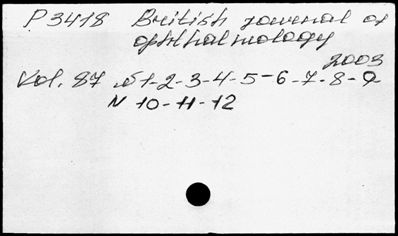 P3418 British journal of
ophthalmology
2003
Vol. 87 №1-2-3-4-5-6-7-8-9
N 10-11-12